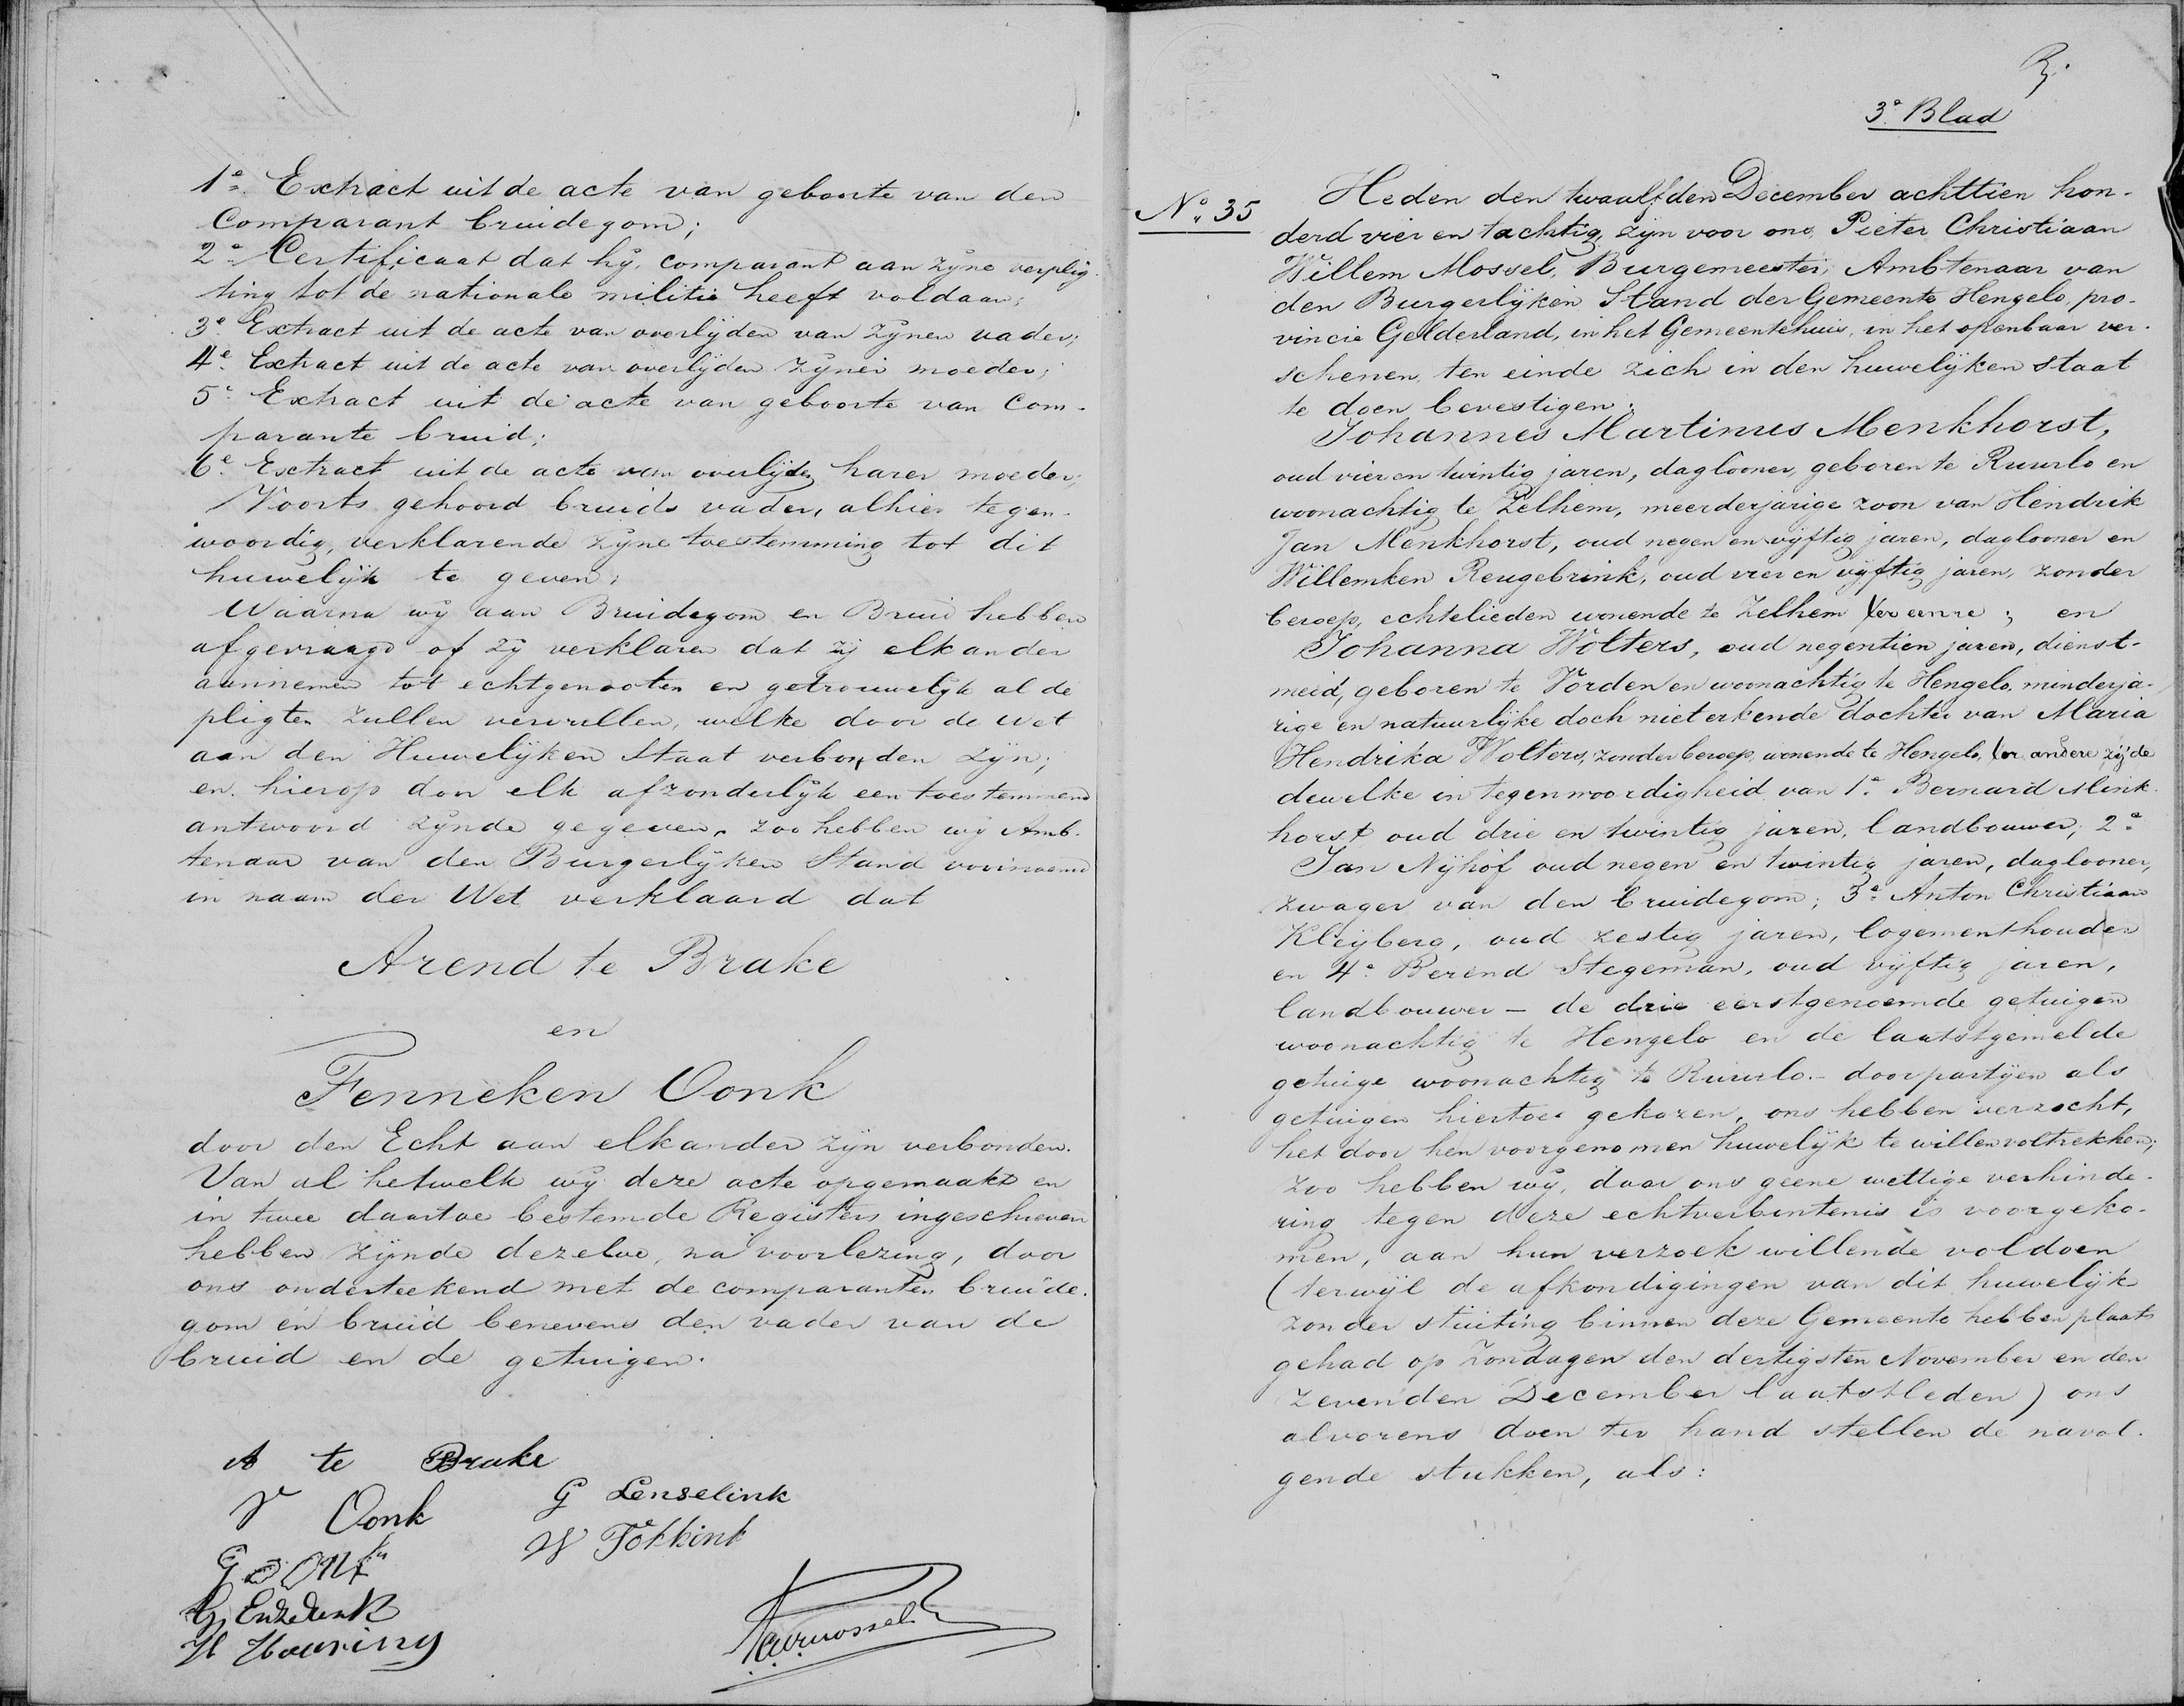 1e. Extract uit de acte van geboorte van den
Comparant bruidegom;
2e Certificaat dat hij, comparant aan zijne verplig
ting tot de nationale militie heeft voldaan;
3e Extract uit de acte van overlijden van zijnen vader;
4e. Extract uit de acte van overlijden zijner moeder;
5e Extract uit de acte van geboorte van Com-
parante bruid;
6e. Extract uit de acte van overlijden harer moeder;
Voorts gehoord bruids vader, alhier tegen-
woordig, verklarende zijne toestemming tot dit
huwelijk te geven;
Waarna wij aan Bruidegom en Bruid hebben
afgevraagd of zij verklaren dat zij elkander
aannemen tot echtgenooten en getrouwelijk al de
pligten zullen vervullen, welke door de wet
aan den Huwelijken Staat verbonden zijn;
en hierop door elk afzonderlijk een toestemmend
antwoord zijnde gegeven, zoo hebben wij Amb-
tenaar van den Burgerlijken Stand voornoemd
in naam der Wet verklaard dat
Arend te Brake
en
Fenneken Oonk
door den Echt aan elkander zijn verbonden.
Van al hetwelk wij deze acte opgemaakt en
in twee daartoe bestemde Registers ingeschreven
hebben zijnde dezelve, na voorlezing, door
ons onderteekend met de comparanten bruide-
gom en bruid benevens den vader van de
bruid en de getuigen.
A te Brake
F Oonk
G Lenselink
W Fokkink
H Houwing
3e Blad
No. 35
Heden den twaalfden December achttien hon-
derd vier en tachtig, zijn voor ons Pieter Christiaan
Willem Mossel, Burgemeester, Ambtenaar van
den Burgerlijken Stand der Gemeente Hengelo, pro-
vincie Gelderland, in het Gemeentehuis, in het openbaar ver-
schenen, ten einde zich in den huwelijken staat
te doen bevestigen:
Johannes Martinus Menkhorst,
oud vier en twintig jaren, daglooner, geboren te Ruurlo en
woonachtig te Zelhem, meerderjarige zoon van Hendrik
Jan Menkhorst, oud negen en vijftig jaren, daglooner en
Willemken Reugebrink, oud vier en vijftig jaren, zonder
beroep, echtelieden wonende te Zelhem ter eenre; en
Johanna Wolters, oud negentien jaren, dienst-
meid, geboren te Vorden en woonachtig te Hengelo, minderja-
rige en natuurlijke doch niet erkende dochter van Maria
Hendrika Wolters, zonder beroep, wonende te Hengelo, ter andere zijde
dewelke in tegenwoordigheid van 1e Bernard Mink-
horst oud drie en twintig jaren, landbouwer; 2e
Jan Nijhof oud negen en twintig jaren, daglooner,
zwager van den bruidegom; 3e Anton Christiaan
Kleijberg, oud zestig jaren, logementhouder
en 4e Berend Stegeman, oud vijftig jaren,
landbouwer - de drie eerstgenoemde getuigen
woonachtig te Hengelo en de laatstgemelde
getuige woonachtig te Ruurlo - door partijen als
getuigen hiertoe gekozen, ons hebben verzocht,
het door hen voorgenomen huwelijk te willen voltrekken;
zoo hebben wij, daar ons geene wettige verhinde-
ring tegen deze echtverbintenis is voorgeko-
men, aan hun verzoek willende voldoen
(terwijl de afkondigingen van dit huwelijk
zonder stuiting binnen deze Gemeente hebben plaats
gehad op Zondagen den dertigsten November en den
zevenden December laatstleden) ons
alvorens doen ter hand stellen de navol-
gende stukken, als: